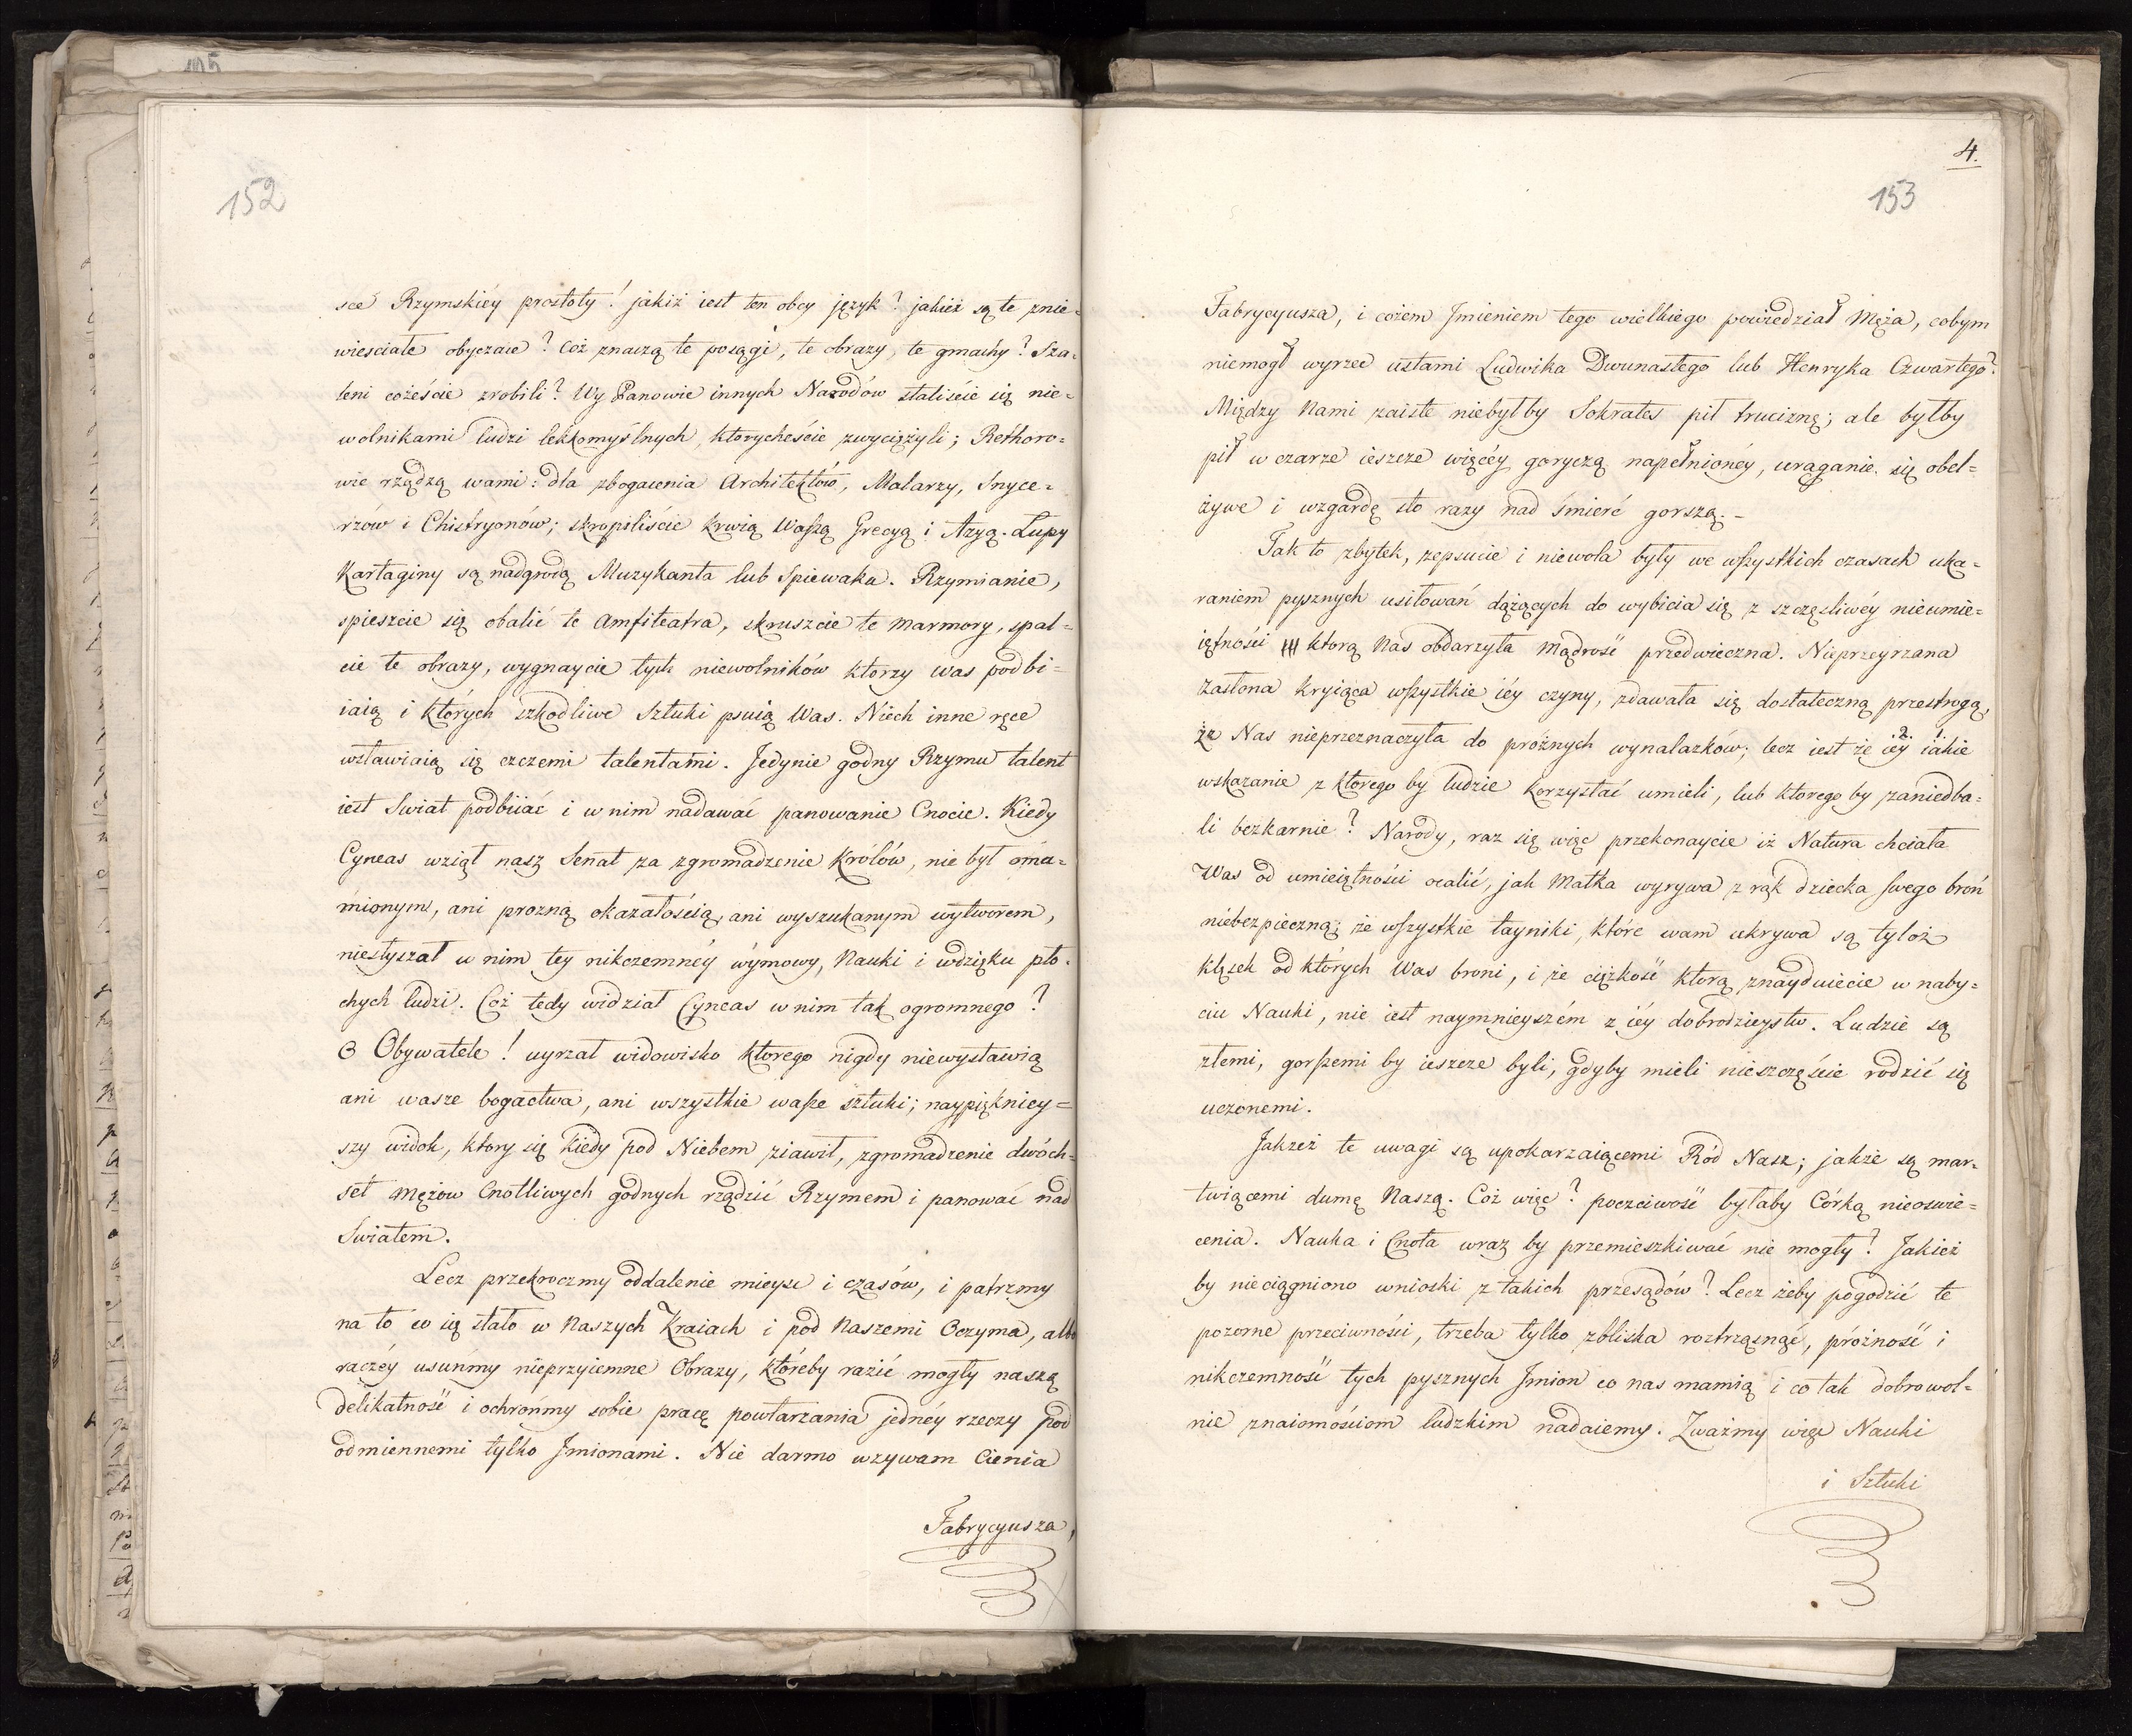 105
152
sce Rzymskiéy prostoty! jakiż iest ten obcy język? jakież są te znie=
wiesciałe obyczaie? Coż znaczą te posągi, te obrazy, te gmachy? Sza=
leni cożeście zrobili? Wy Panowie innych Narodów staliście się nie=
wolnikami ludzi lekkomyślnych, ktorycheście zwyciężyli; Rethoro=
wie rządzą wami: dla zbogacenia Architektów, Malarzy, Snyce=
rzów i Chistryonów; skropiliście krwią Waszą Grecyą i Azyą. Łupy
Kartaginy są nadgrodą Muzykanta lub Spiewaka. Rzymianie,
spieszcie się obalić te Amfiteatra, skruszcie te marmory, spal=
cie te obrazy, wygnaycie tych niewolników ktorzy was podbi=
iaią i których szkodliwe Sztuki psuią Was. Niech inne ręce
wsławiaią się czczemi talentami. Jedynie godny Rzymu talent
iest Swiat podbiiać i w nim nadawać panowanie Cnocie. Kiedy
Cyneas wziął nasz Senat za zgromadzenie Królów, nie był oma=
mionym, ani prozną okazałością, ani wyszukanym wytworem,
niesłyszał w nim tey nikczemnéy wymowy, Nauki i wdzięku pło=
chych ludzi. Cóż tedy widział Cyneas w nim tak ogromnego?
O Obywatele! uyrzał widowisko ktorego nigdy niewystawią
ani wasze bogactwa, ani wszystkie wasze sztuki; naypiękniey=
szy widok, ktory się kiedy pod Niebem ziawił, zgromadzenie dwóch=
set Mężow Cnotliwych godnych rządzić Rzymem i panować nad
Swiatem.
Lecz przekroczmy oddalenie mieysc i czasów, i patrzmy
na to co się stało w Naszych Kraiach i pod Naszemi Oczyma, albo
raczéy usuńmy nieprzyiemne Obrazy, któreby razić mogły naszą
delikatność i ochrońmy sobie pracę powtarzania jednéy rzeczy pod
odmiennemi tylko Jmionami. Nie darmo wzywam Cienia
Fabrycyusza,
4.
153
Fabrycyusza, i cożem Jmieniem tego wielkiego powiedział Męża, cobym
niemogł wyrzec ustami Ludwika Dwunastego lub Henryka Czwartego?
Między Nami zaiste niebyłby Sokrates pił truciznę; ale byłby
pił w czarze ieszcze więcéy goryczą napełnionéy, uraganie się obel=
żywe i wzgardę sto razy nad śmierć gorszą. -
Tak to zbytek, zepsucie i niewola były we wszystkich czasach uka=
raniem pysznych usiłowań dążących do wybicia się z szczęsliwéy nieumie=
iętności ktorą Nas obdarzyła Mądrość przedwieczna. Nieprzeyrzana
Zasłona kryiąca wszystkie iéy czyny, zdawała się dostateczną przestrogą,
że Nas nieprzeznaczyła do próżnych wynalazków; lecz iest że .2. iéy 1. iakie
wskazanie z ktorego by ludzie korzystać umieli, lub ktorego by zaniedba=
li bezkarnie? Narody, raz się więc przekonaycie iż Natura chciała
Was od umieiętności ocalić, jak Matka wyrywa z rąk dziecka swego broń
niebezpieczną; że wszystkie tayniki, które wam ukrywa są tyloż
klęsek od których Was broni, i że ciężkość którą znayduiecie w naby=
ciu Nauki, nie iest naymnieyszém z iéy dobrodzieystw. Ludzie są
złemi, gorszemi by ieszcze byli, gdyby mieli nieszczęście rodzić się
uczonemi.
Jakżeż te uwagi są upokarzaiącemi Ród Nasz; jakże są mar=
twiącemi dumę Naszą. Cóż więc? poczciwość byłaby Córką nieoswie=
cenia. Nauka i Cnota wraz by przemieszkiwać nie mogły? Jakież
by nieciągniono wnioski z takich przesądów? Lecz żeby pogodzić te
pozorne przeciwności, trzeba tylko zbliska roztrząsnąć, próżność i
nikczemność tych pysznych Jmion co nas mamią i co tak dobrowol=
nie znaiomościom ludzkim nadaiemy. Zważmy więc Nauki
i Sztuki